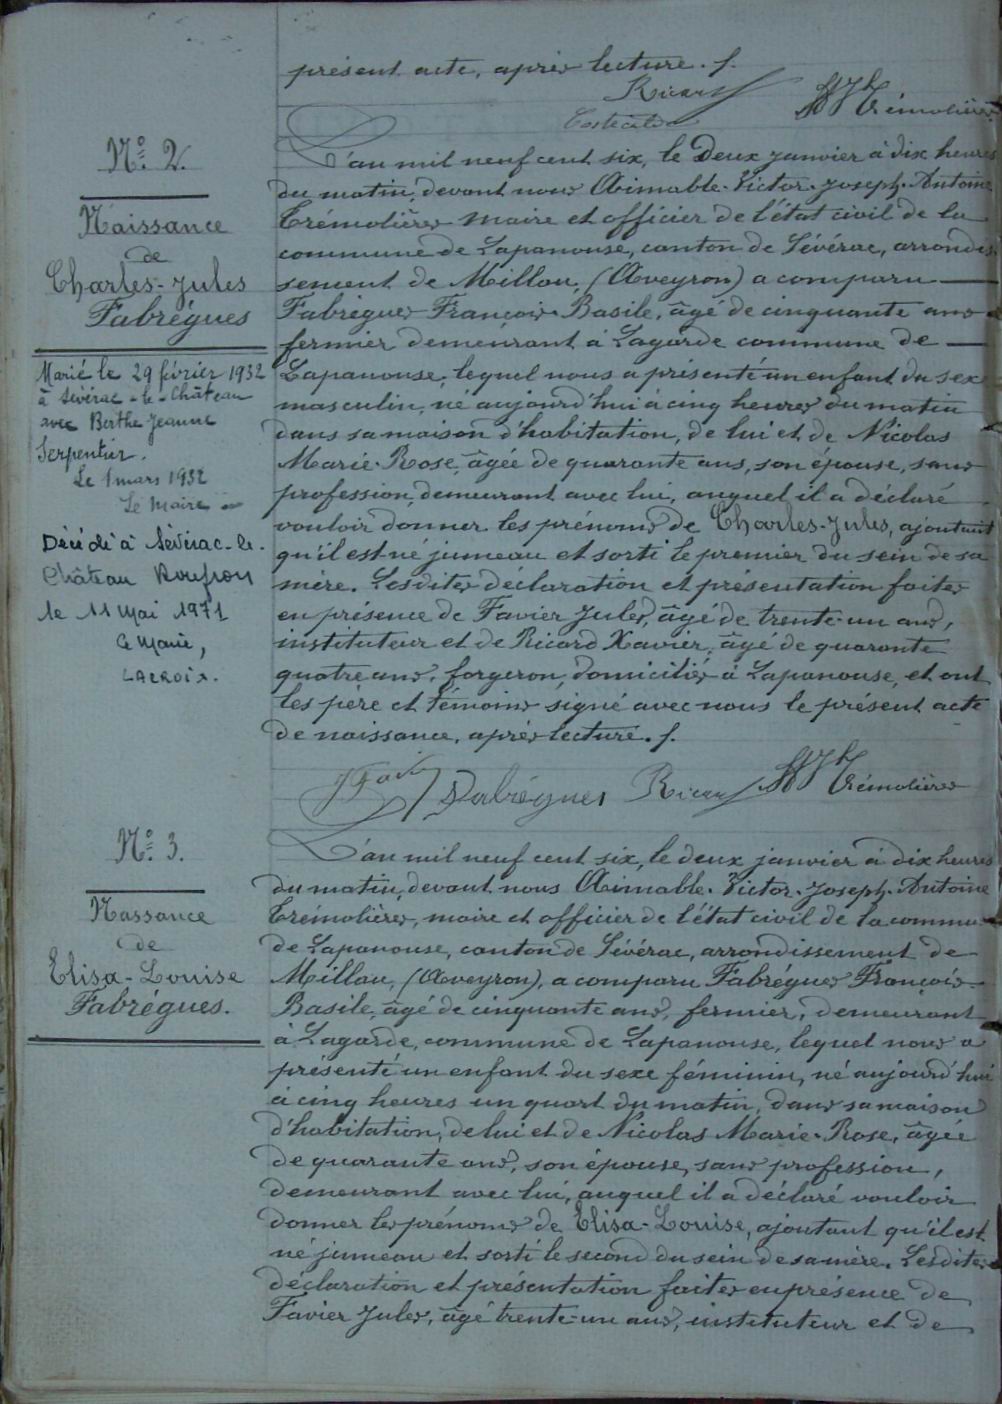 présent acte, après lecture. f.
Ricard Trémolières
No. 2.
Naissance
de
Charles-Jules
Fabrégues
Marié le 29 février 1932
à Sévérac-le-Château
avec Berthe Jeanne
Serpentier.
Le 1 mars 1932
Le Maire
Décédé à Sévérac-le-
Château
le 11 Mai 1971
Le Maire,
LACROIX.
L'an mil neuf cent six, le Deux janvier à dix heures
du matin, devant nous Aimable-Victor-Joseph-Antoine
Trémolières maire et officier de l'état civil de la
commune de Lapanouse, canton de Sévérac, arrondis-
sement de Millau, (Aveyron) a comparu
Fabrégues François-Basile, âgé de cinquante ans
fermier demeurant à Lagarde commune de
Lapanouse, lequel nous a présenté un enfant du sexe
masculin, né aujourd'hui à cinq heures du matin
dans sa maison d'habitation, de lui et de Nicolas
Marie-Rose, âgée de quarante ans, son épouse, sans
profession, demeurant avec lui, auquel il a déclaré
vouloir donner les prénoms de Charles-Jules, ajoutant
qu'il est né jumeau et sorti le premier du sein de sa
mère. Lesdites déclaration et présentation faites
en présence de Favier Jules, âgé de trente-un ans,
instituteur et de Ricard Xavier, âgé de quarante
quatre ans, forgeron, domiciliés à Lapanouse, et ont
les père et témoins signé avec nous le présent acte
de naissance, après lecture. f.
J Favier Fabrégues Ricard Trémolières
No. 3.
Nassance
de
Elisa-Louise
Fabrégues.
L'an mil neuf cent six, le deux janvier à dix heures
du matin, devant nous Aimable-Victor-Joseph-Antoine
Trémolières, maire et officier de l'état civil de la commune
de Lapanouse, canton de Sévérac, arrondissement de
Millau, (Aveyron), a comparu Fabrégues François-
Basile, âgé de cinquante ans, fermier, demeurant
à Lagarde, commune de Lapanouse, lequel nous a
présenté un enfant du sexe féminin, né aujourd'hui
à cinq heures un quart du matin, dans sa maison
d'habitation, de lui et de Nicolas Marie-Rose, âgée
de quarante ans, son épouse, sans profession,
demeurant avec lui, auquel il a déclaré vouloir
donner les prénoms de Elisa-Louise, ajoutant qu'il est
né jumeau et sorti le second du sein de sa mère. Lesdites
déclaration et présentation faites en présence de
Favier Jules, âgé trente-un ans, instituteur et de